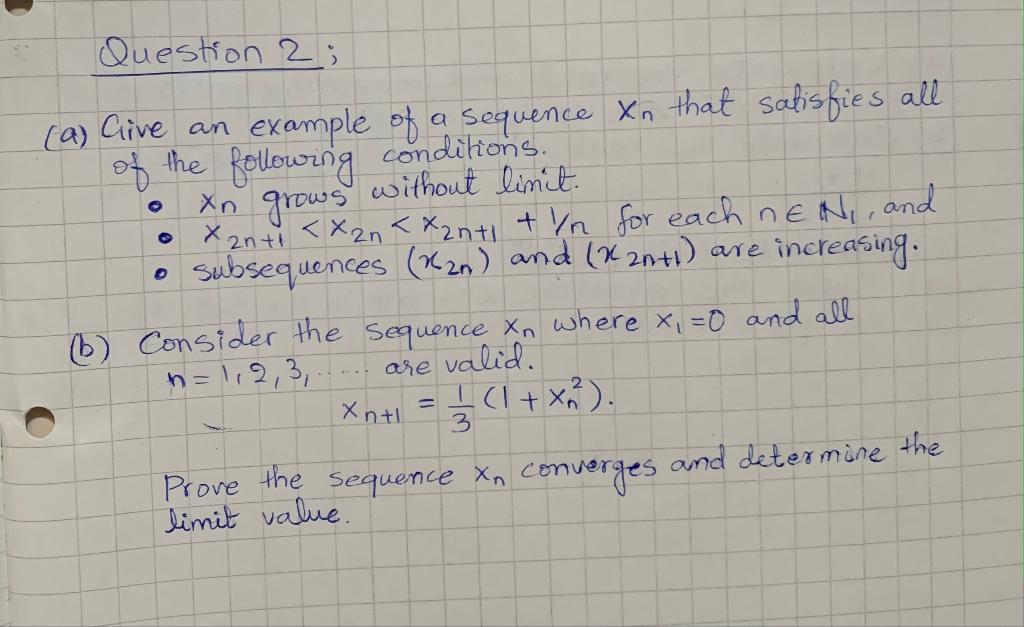 Question 2;
(a) Give an example of a sequence xₙ that satisfies all
of the following conditions.
• xₙ grows without limit.
• x₂ₙ₊₁ < x₂ₙ < x₂ₙ₊₁ + 1/n for each n ∈ ℕ₁, and
• subsequences (x₂ₙ) and (x₂ₙ₊₁) are increasing.
(b) Consider the sequence xₙ where x₁ = 0 and all
n = 1, 2, 3, ...... are valid.
xₙ₊₁ = 1/3 (1 + xₙ²).
Prove the sequence xₙ converges and determine the
limit value.